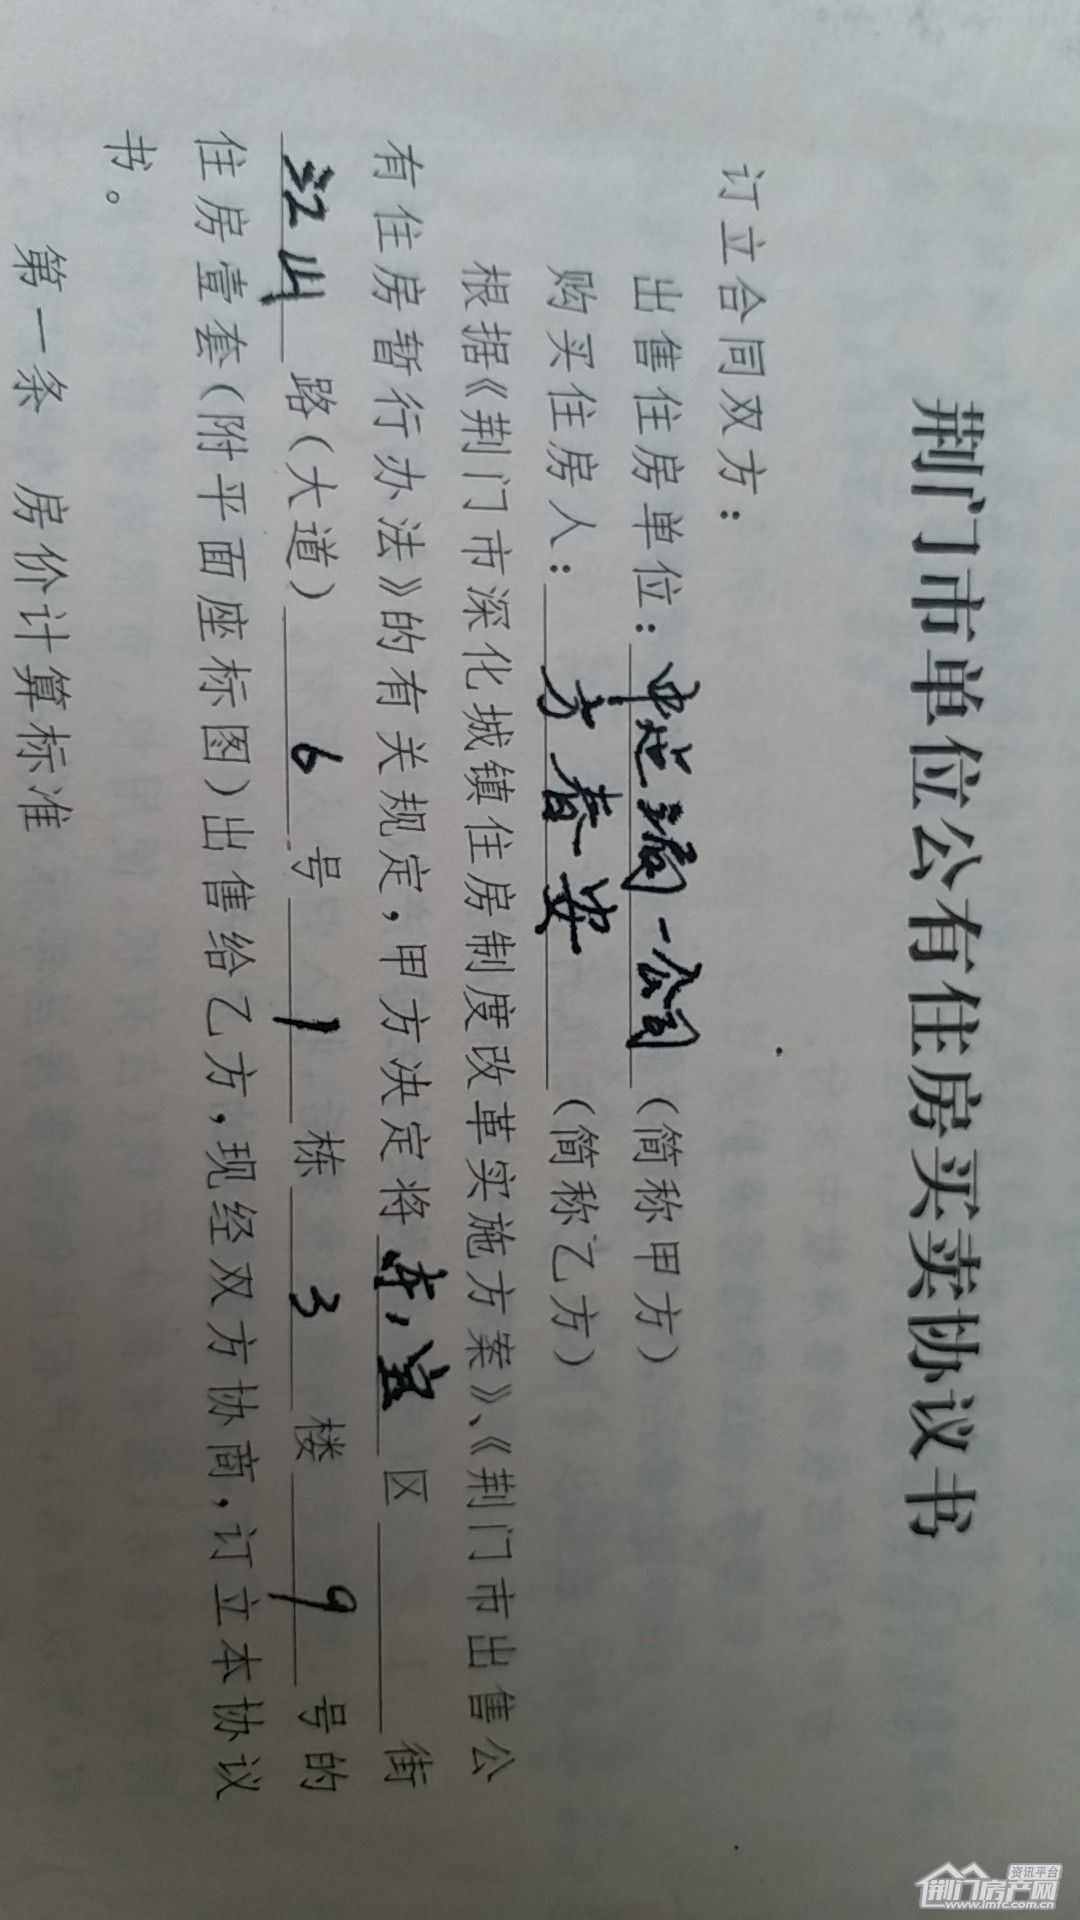 荆门市单位公有住房买卖协议书
订立合同双方：
出售住房单位：中建三局一公司（简称甲方）
购买住房人：方春安（简称乙方）
根据《荆门市深化城镇住房制度改革实施方案》、《荆门市出售公
有住房暂行办法》的有关规定，甲方决定将东宝区街
江山路（大道）6号1栋3楼9号的
住房壹套（附平面座标图）出售给乙方，现经双方协商，订立本协议
书。
第一条 房价计算标准
资讯平台
荆门房产网
www.jmfc.com.cn